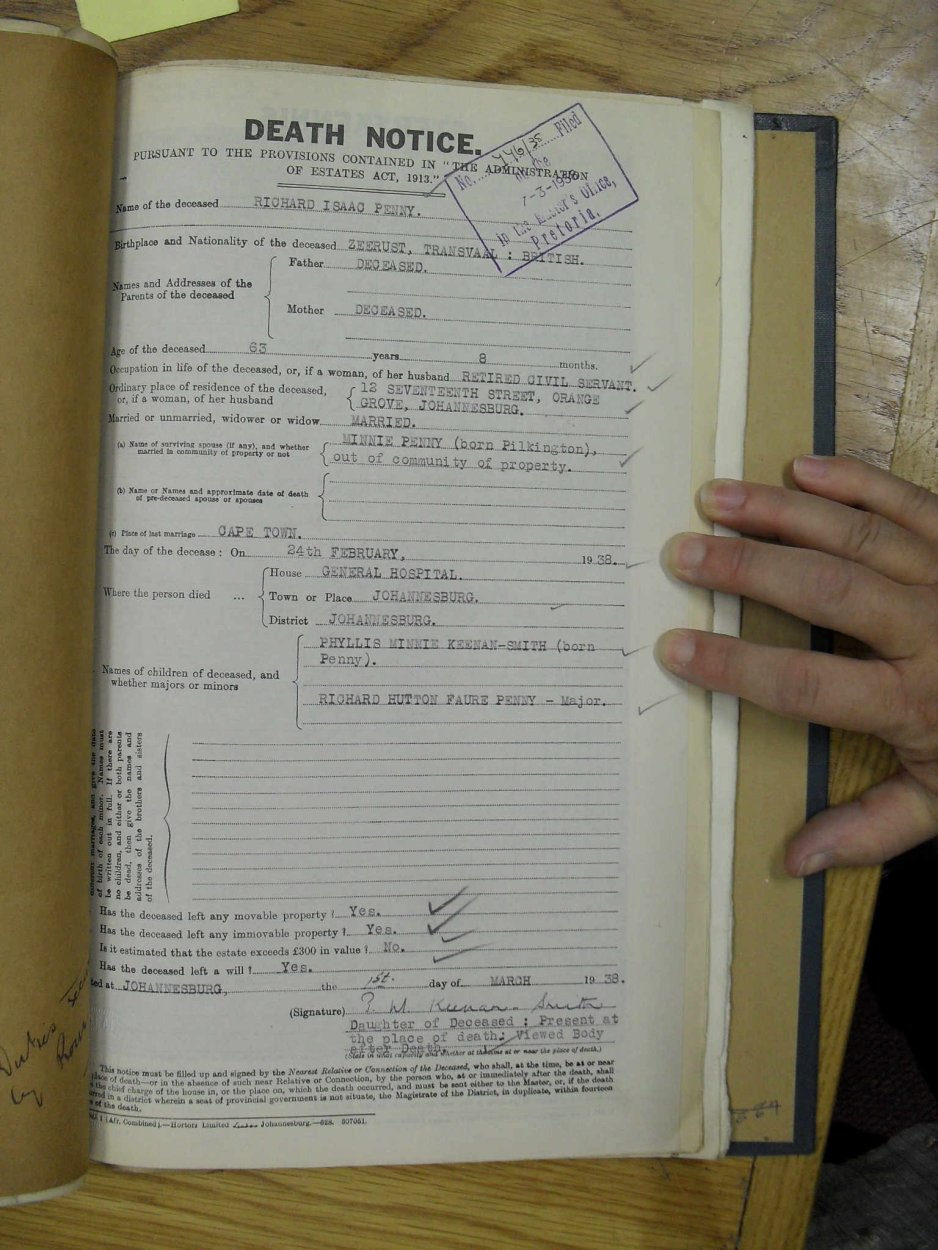 DEATH NOTICE.
PURSUANT TO THE PROVISIONS CONTAINED IN "THE ADMINISTRATION
OF ESTATES ACT, 1913."
No. Filed
on the
7-3-1938
in the Master's Office,
Pretoria.
Name of the deceased RICHARD ISAAC PENNY.
Birthplace and Nationality of the deceased ZEERUST, TRANSVAAL : BRITISH.
Names and Addresses of the
Parents of the deceased
Father DECEASED.
Mother DECEASED.
Age of the deceased 63 years 8 months.
Occupation in life of the deceased, or, if a woman, of her husband RETIRED CIVIL SERVANT.
Ordinary place of residence of the deceased,
or, if a woman, of her husband
12 SEVENTEENTH STREET, ORANGE
GROVE, JOHANNESBURG.
Married or unmarried, widower or widow MARRIED.
(a) Name of surviving spouse (if any), and whether
married in community of property or not
MINNIE PENNY (born Pilkington),
out of community of property.
(b) Name or Names and approximate date of death
of pre-deceased spouse or spouses
(c) Place of last marriage CAPE TOWN.
The day of the decease : On 24th FEBRUARY, 1938.
Where the person died ...
House GENERAL HOSPITAL.
Town or Place JOHANNESBURG.
District JOHANNESBURG.
Names of children of deceased, and
whether majors or minors
PHYLLIS MINNIE KEENAN-SMITH (born
Penny).
RICHARD HUTTON FAURE PENNY - Major.
different marriages, and give the date
of birth of each minor. Names must
be written out in full. If there are
no children, and either or both parents
be dead, then give the names and
addresses of the brothers and sisters
of the deceased.
Has the deceased left any movable property? Yes.
Has the deceased left any immovable property? Yes.
Is it estimated that the estate exceeds £300 in value? No.
Has the deceased left a will? Yes.
ted at JOHANNESBURG, the 1st. day of MARCH 1938.
(Signature) P. M. Keenan-Smith
Daughter of Deceased : Present at
the place of death: Viewed Body
after Death.
(State in what capacity and whether at the time at or near the place of death.)
This notice must be filled up and signed by the Nearest Relative or Connection of the Deceased, who shall, at the time, be at or near
place of death—or in the absence of such near Relative or Connection, by the person who, at or immediately after the death, shall
the chief charge of the house in, or the place on, which the death occurred, and must be sent either to the Master, or, if the death
rred in a district wherein a seat of provincial government is not situate, the Magistrate of the District, in duplicate, within fourteen
of the death.
1 (Afr. Combined).—Hortors Limited Johannesburg.—528. 507051.